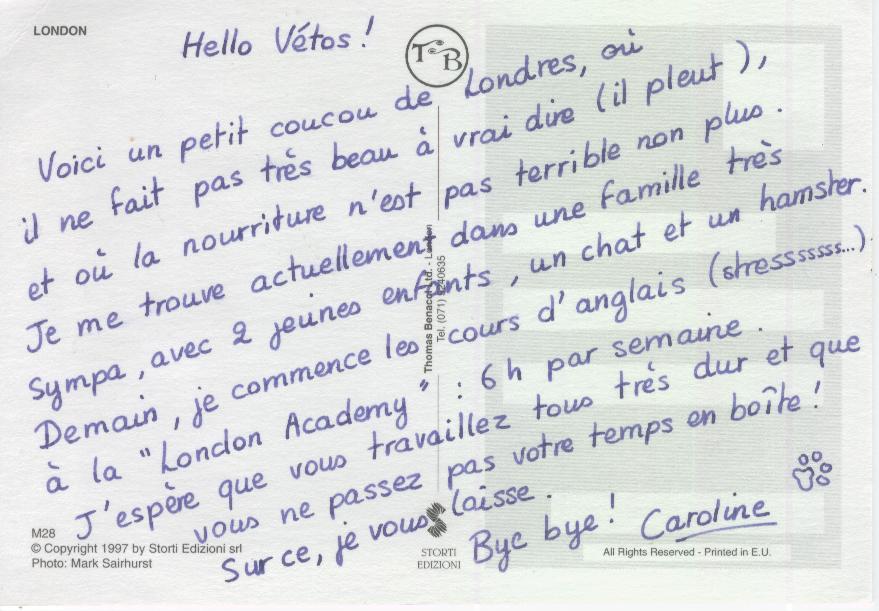 LONDON
Hello Vétos !
T B
Voici un petit coucou de Londres, où
il ne fait pas très beau à vrai dire (il pleut),
et où la nourriture n'est pas terrible non plus.
Je me trouve actuellement dans une famille très
sympa, avec 2 jeunes enfants, un chat et un hamster.
Demain, je commence les cours d'anglais (stresssssss...)
à la "London Academy" : 6h par semaine.
J'espère que vous travaillez tous très dur et que
vous ne passez pas votre temps en boîte !
Sur ce, je vous laisse.
Bye bye ! Caroline
Thomas Benacci Ltd. - London
Tel. (071) 9240635
M28
© Copyright 1997 by Storti Edizioni srl
Photo: Mark Sairhurst
STORTI
EDIZIONI
All Rights Reserved - Printed in E.U.